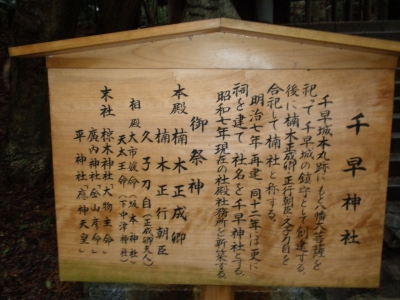 千早神社
千早城本丸跡にもと八幡大菩薩を
祀って千早城の鎮守として創建する
後に楠木正成卿、正行朝臣、久子刀自を
合祀して楠社と称する。
明治七年再建 同十二年は更に
祠を建て 社名を千早神社とする
昭和七年現在の社殿社務所を新築する
御祭神
本殿 楠木正成卿
楠木正行朝臣
久子刀自(正成卿夫人)
相殿 大市彼命(坂木神社)
天太玉命(下中津神社)
末社 椋木神社(大物主命)
廣内神社(金山彦命)
平神社(應神天皇)